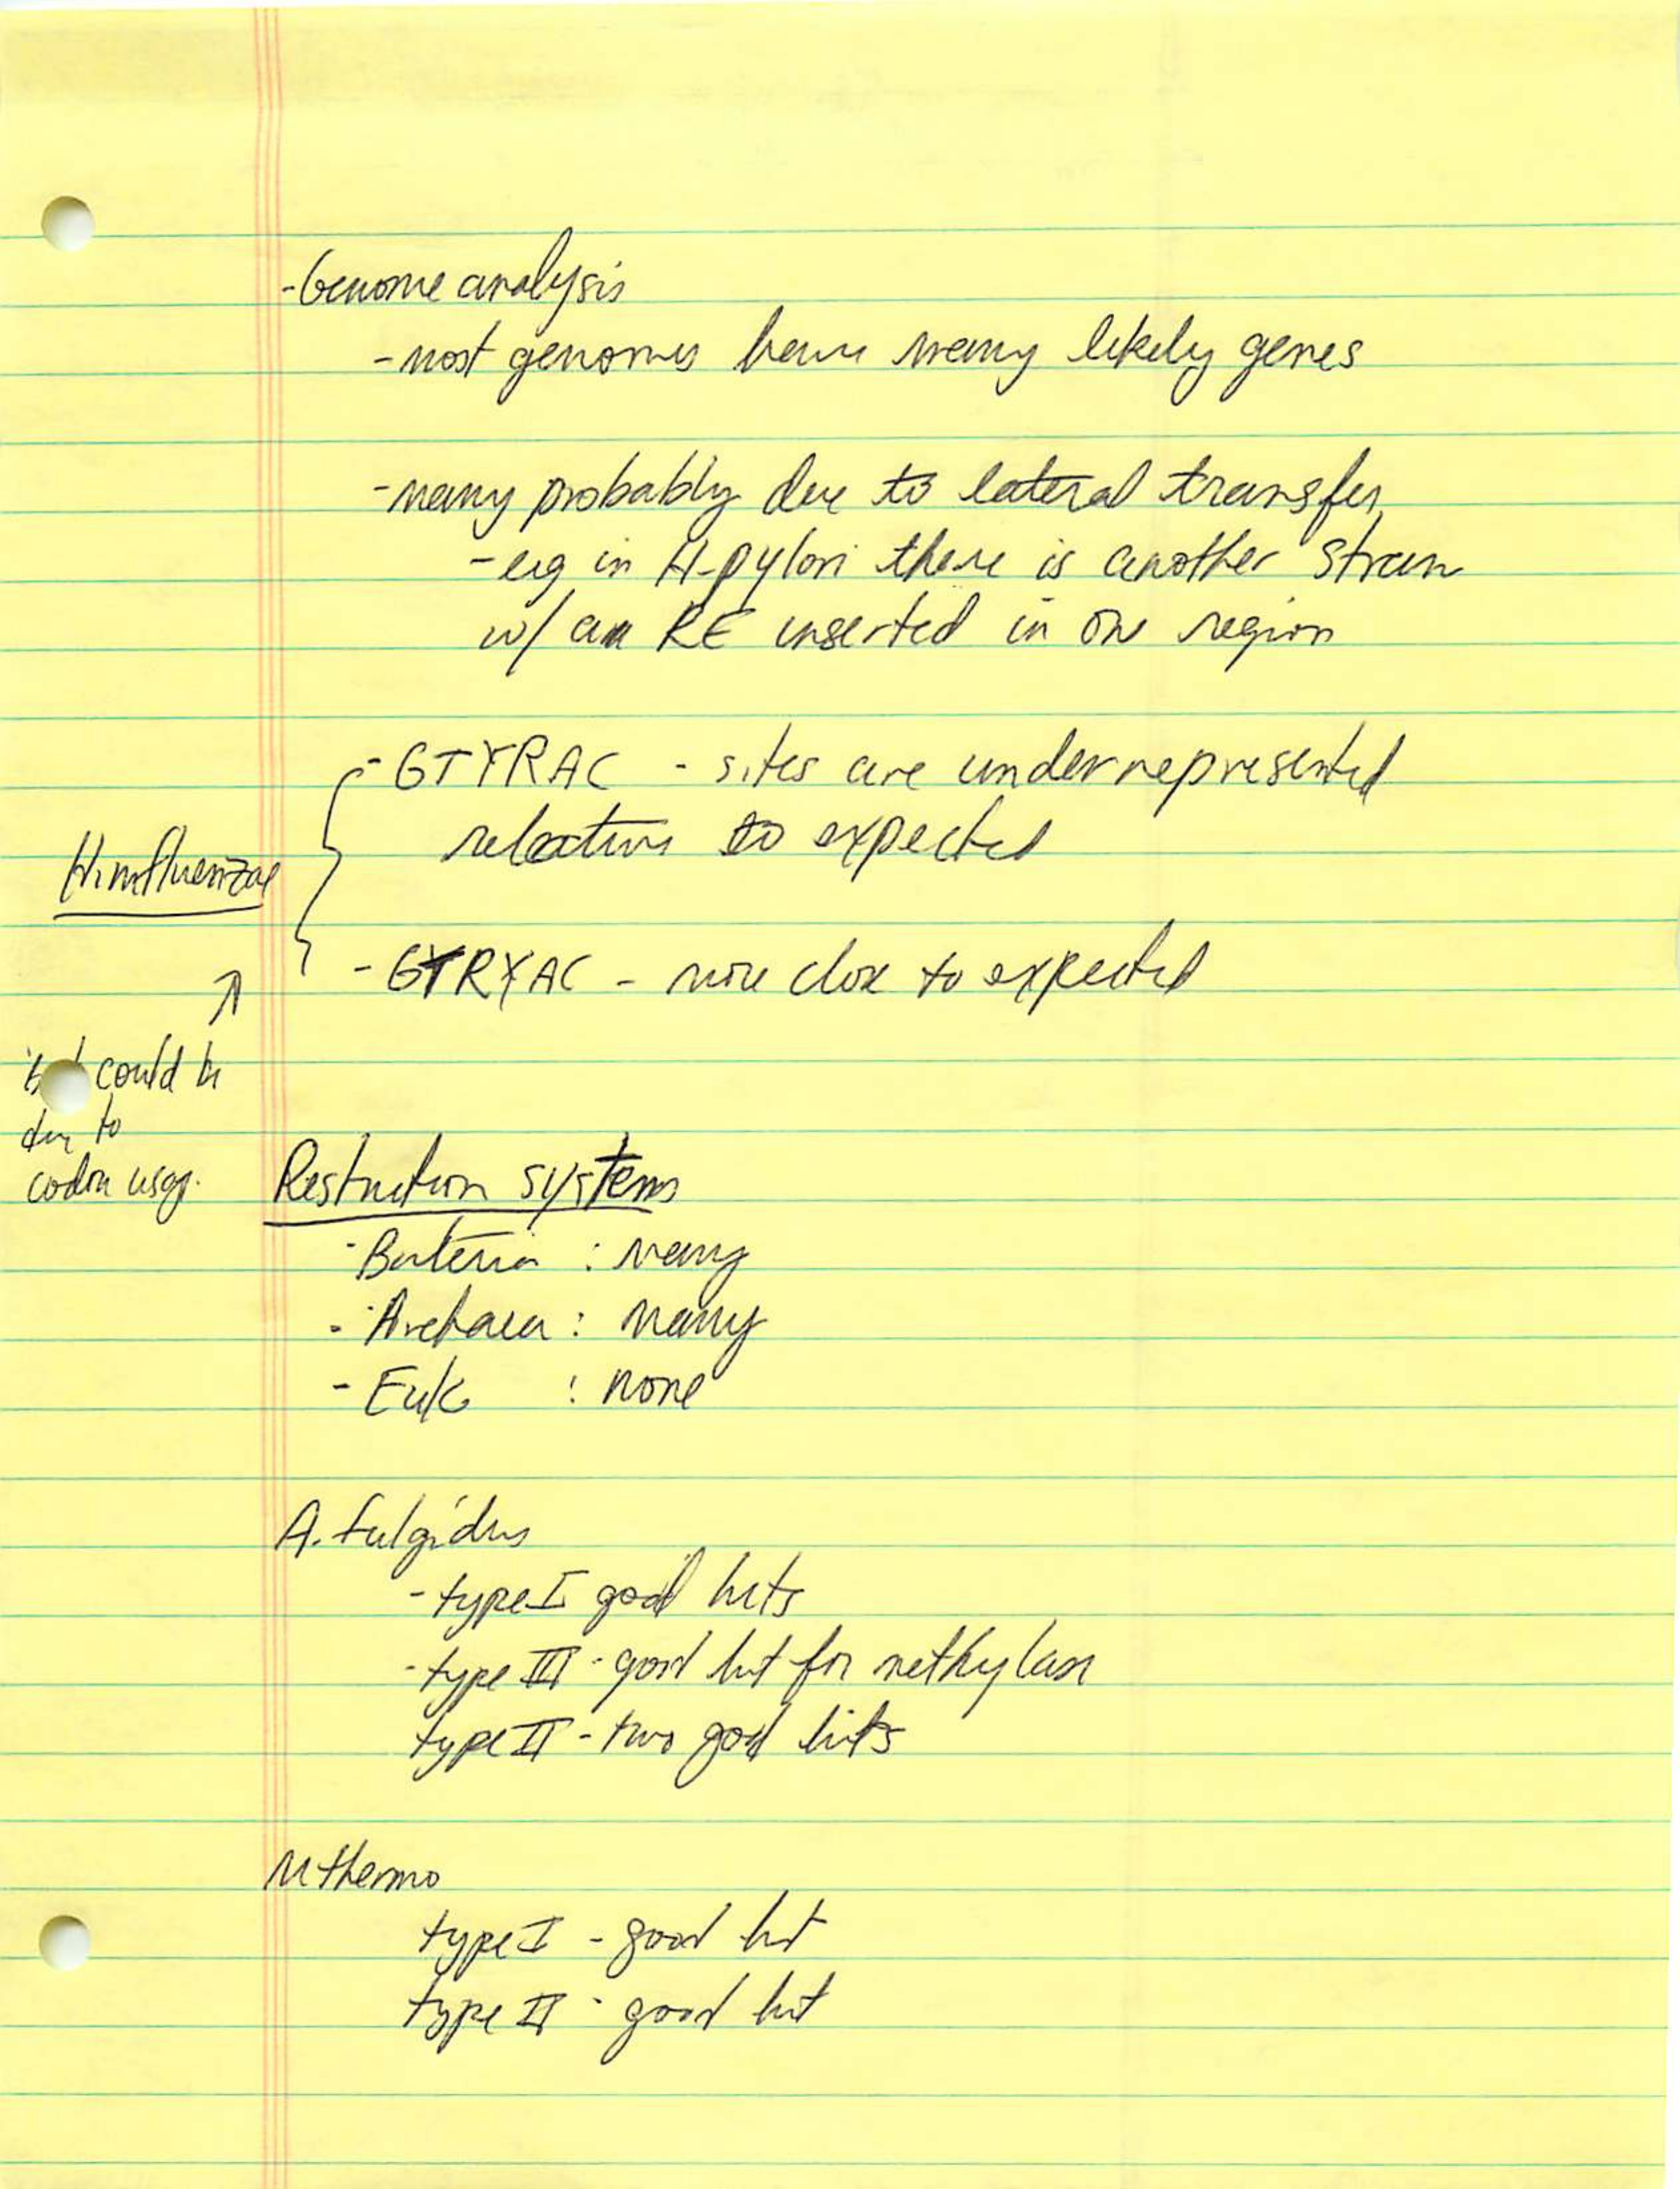 - Genome analysis
- most genomes have many likely genes
- many probably due to lateral transfer,
- eg in H. pylori there is another strain
w/ an RE inserted in one region
- GTYRAC - sites are underrepresented
relative to expected
H. influenzae
- GTRYAC - more close to expected
could be
due to
codon usg.
Restriction systems
- Bacteria : many
- Archaea : many
- Euk : none
A. fulgidus
- type I good hits
- type III - good hit for methylase
type II - two good hits
M thermo
type I - good hit
type II - good hit